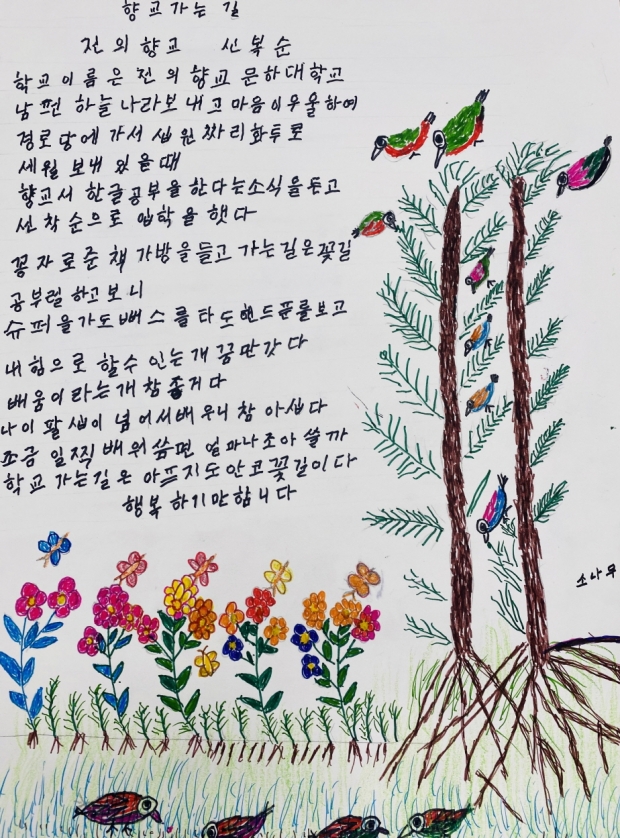 향교가는 길
전의향교 신복순
학교이름은 전의 향교 문하대학교
남편 하늘나라보내고마음이우울하여
경로당에 가서 십원짜리화투로
세월 보내 있을때
향교서 한글공부을한다는소식을듣고
선착순으로 입학을햇다
꽁자로준책가방을들고 가는길은꽃길
공부럴하고보니
슈퍼을가도배스를타도핸드푼를보고
내힘으로 할수인는개꿈만갓다
배움이라는개참좋거다
나이팔십이넘어서배우니참아십다
조금일찍배워쓰면얼마나조아쓸까
학교가는길은아프지도안코꽃길이다
행복하기만합니다
소나무